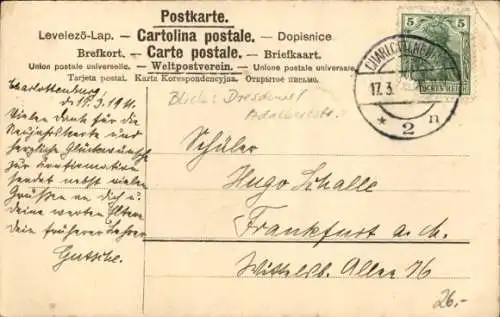 Postkarte.
Levelező-Lap. — Cartolina postale. — Dopisnice
Brefkort. — Carte postale. — Briefkaart.
Union postale universelle. — Weltpostverein. — Unione postale universale.
Tarjeta postal. Karta Korespondencyjna. Открытое письмо.
5 5
DEUTSCHES REICH
CHARLOTTENBURG
17.3.
* 2 n
Blick: Dresdener/
Adalbertstr.
Charlottenburg,
d. 17.3.1911.
Vielen Dank für die
Neujahrskarte und
herzliche Glückwünsche
zur Konfirmation
sendet nebst vielen
Grüßen an dich u.
deine werten Eltern
Dein früherer Lehrer
Gutsche.
Schüler
Hugo Schalle
Frankfurt a. M.
Wittelsb. Allee 76
26.-